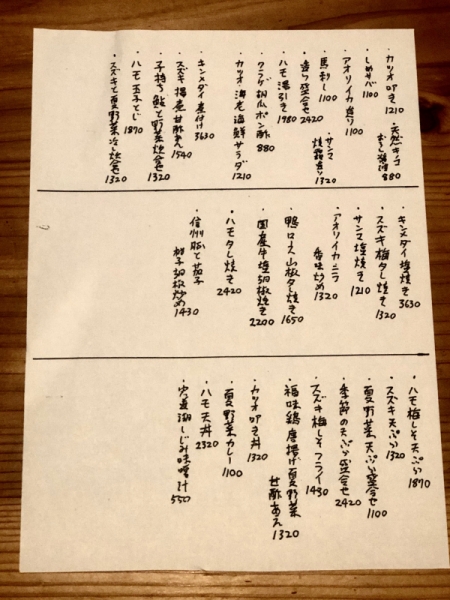 ・カツオ叩き 1210
・天然キノコ
おろし醤油 880
・しめサバ 1100
・アオリイカ造り 1100
・馬刺し 1100
・サンマ
焼霜造り 1320
・造り盛合せ 2420
・ハモ湯引き 1980
・クラゲ胡瓜ポン酢 880
・カツオ海老海鮮サラダ 1210
・キンメダイ煮付け 3630
・スズキ揚煮甘酢あん 1540
・子持ち鮎と野菜炊合せ 1320
・ハモ玉子とじ 1870
・スズキと夏野菜冷し炊合せ 1320
・キンメダイ塩焼き 3630
・スズキ梅タレ焼き 1320
・サンマ塩焼き 1210
・アオリイカニラ
香味炒め 1320
・鴨ロース山椒タレ焼き 1650
・国産牛塩胡椒焼き 2200
・ハモタレ焼き 2420
・信州豚と茄子
柚子胡椒炒め 1430
・ハモ梅しそ天ぷら 1870
・スズキ天ぷら 1320
・夏野菜天ぷら盛合せ 1100
・季節の天ぷら盛合せ 2420
・スズキ梅しそフライ 1430
・福味鶏唐揚げ夏野菜
甘酢あえ 1320
・カツオ叩き丼 1320
・夏野菜カレー 1100
・ハモ天丼 2320
・宍道湖しじみ味噌汁 550